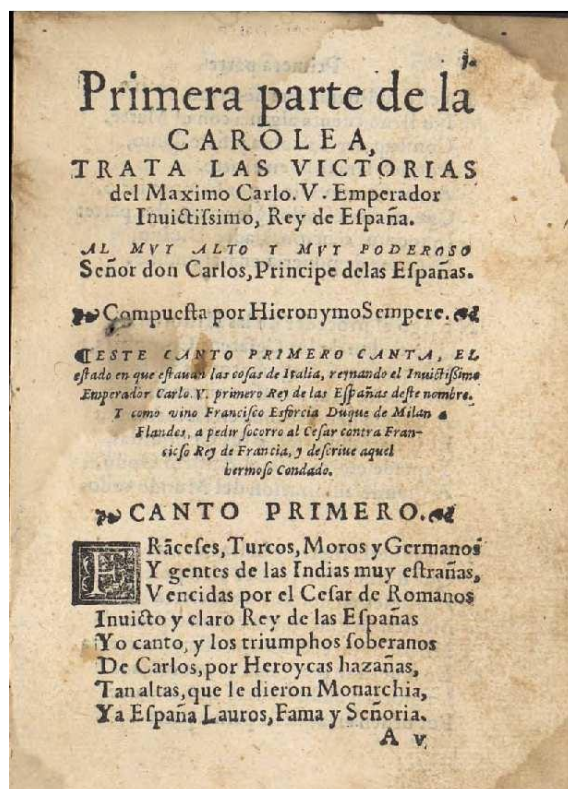 1.
Primera parte de la
CAROLEA,
TRATA LAS VICTORIAS
del Maximo Carlo. V. Emperador
Inuictiſsimo, Rey de Eſpaña.
AL MVY ALTO Y MVY PODEROSO
Señor don Carlos, Principe delas Eſpañas.
Compueſta por Hieronymo Sempere.
¶ESTE CANTO PRIMERO CANTA, EL
eſtado en que eſtauan las coſas de Italia, reynando el Inuictiſſimo
Emperador Carlo. V. primero Rey de las Eſpañas deſte nombre.
Y como vino Franciſco Esforcia Duque de Milan a
Flandes, a pedir ſocorro al Ceſar contra Fran-
ciſco Rey de Francia, y deſcriue aquel
hermoſo Condado.
CANTO PRIMERO.
FRãceſes, Turcos, Moros y Germanos
Y gentes de las Indias muy eſtrañas,
Vencidas por el Ceſar de Romanos
Inuicto y claro Rey de las Eſpañas
Yo canto, y los triumphos ſoberanos
De Carlos, por Heroycas hazañas,
Tan altas, que le dieron Monarchia,
Ya Eſpaña Lauros, Fama y Señoria.
A v